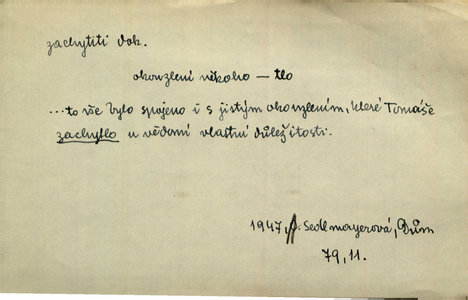 zachytiti dok.
okouzlení někoho — tlo
...to vše bylo spojeno i s jistým okouzlením, které Tomáše
zachytlo u vědomí vlastní důležitosti.
1947, Sedlmayerová, Dům
79, 11.